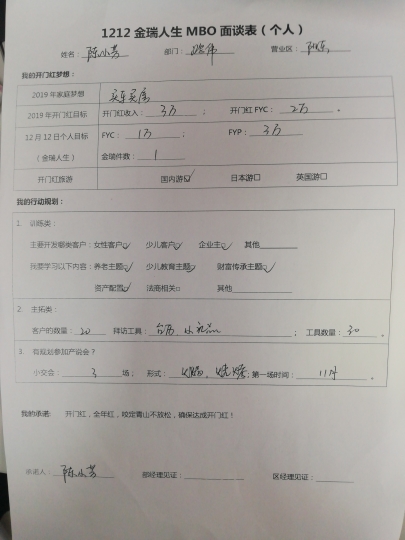 1212金瑞人生 MBO 面谈表（个人）
姓名：陈小芳 部门： 营业区：
我的开门红梦想：
2019年家庭梦想 买车买房
2019年开门红目标 开门红收入：3万 ； 开门红 FYC：2万 。
12月12日个人目标 FYC：1万 ； FYP：3万
（金瑞人生） 金瑞件数：1
开门红旅游 国内游☑ 日本游□ 英国游□
我的行动规划：
1. 训练类：
主要开发哪类客户：女性客户☑ 少儿客户☑ 企业主☑ 其他
我要学习以下内容：养老主题☑ 少儿教育主题☑ 财富传承主题☑
资产配置☑ 法商相关□ 其他
2. 主拓类：
客户的数量：20 拜访工具：台历 小礼品 ； 工具数量：30 。
3. 有规划参加产说会？
小交会： 3 场； 形式： 烧烤 ；第一场时间： 。
我的承诺: 开门红，全年红，咬定青山不放松，确保达成开门红！
承诺人：陈小芳 部经理见证： 区经理见证：